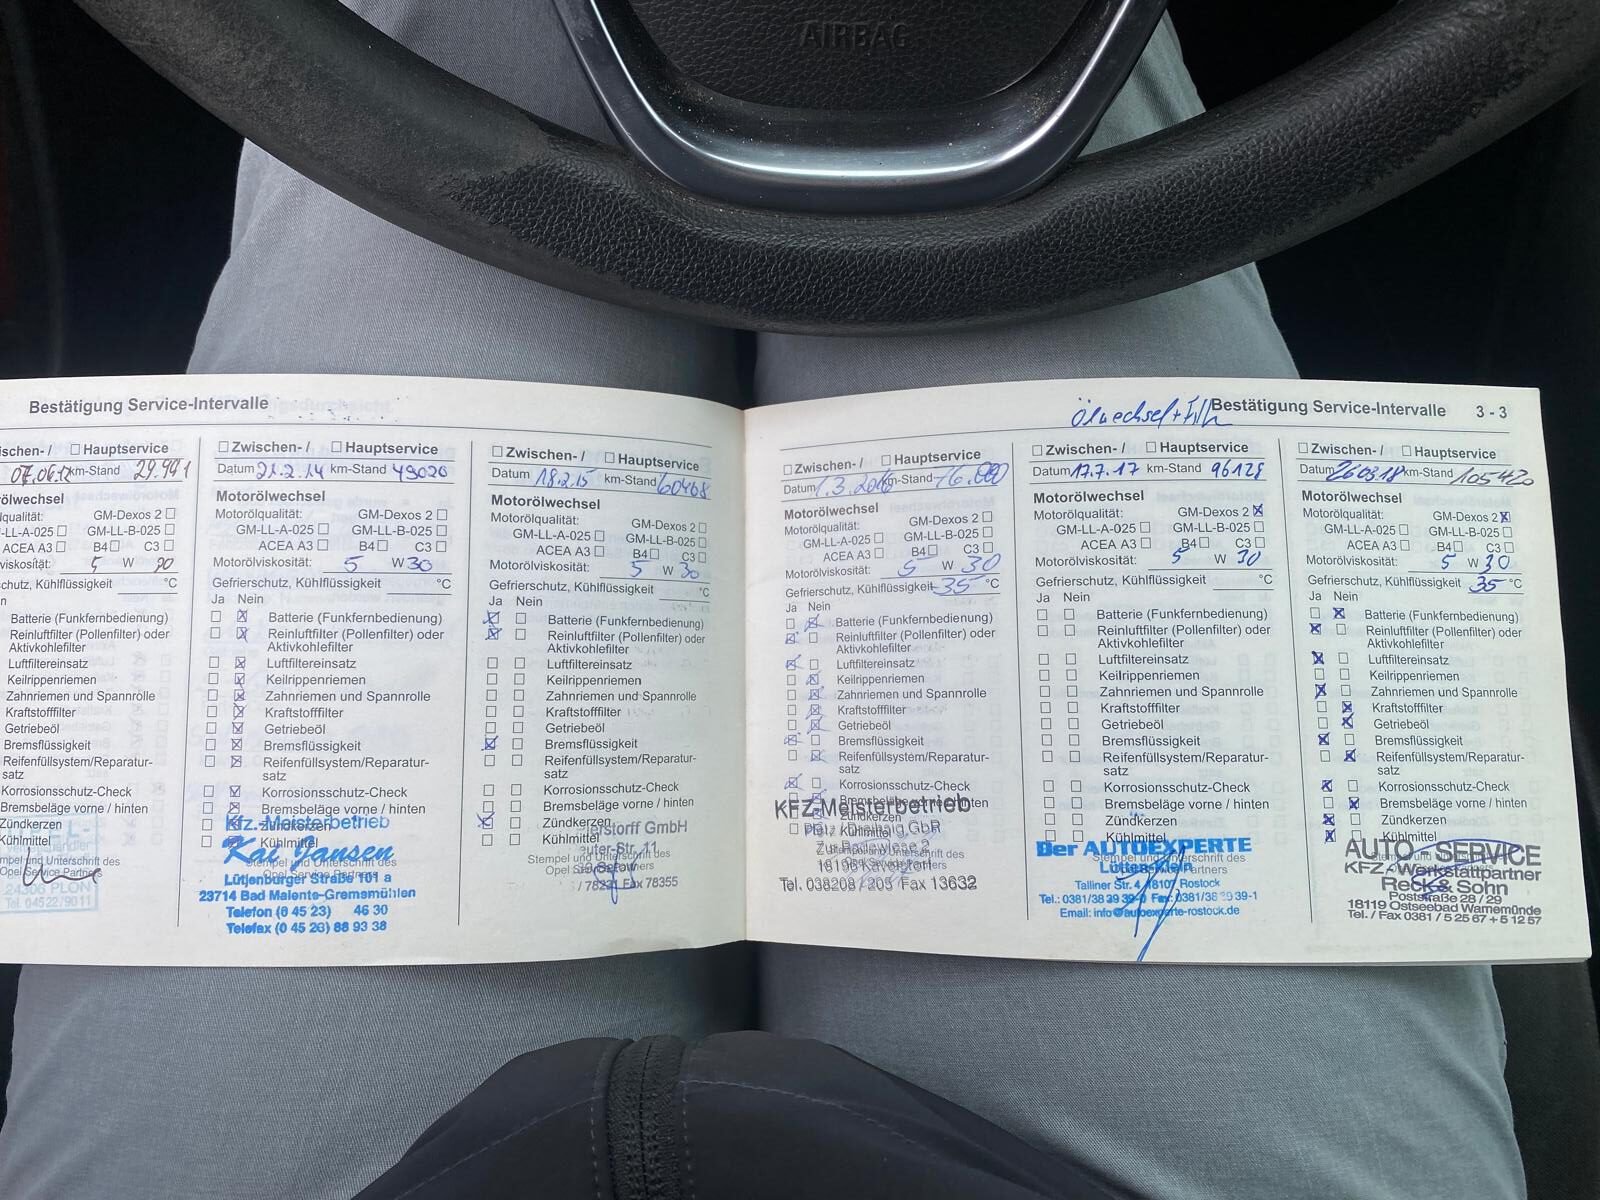 AIRBAG
Bestätigung Service-Intervalle
schen- / ☐ Hauptservice
07.06.12 km-Stand 29.991
ölwechsel
lqualität: GM-Dexos 2 ☐
-LL-A-025 ☐ GM-LL-B-025 ☐
ACEA A3 ☐ B4 ☐ C3 ☐
viskosität: 5 W
chutz, Kühlflüssigkeit °C
n
Batterie (Funkfernbedienung)
Reinluftfilter (Pollenfilter) oder
Aktivkohlefilter
Luftfiltereinsatz
Keilrippenriemen
Zahnriemen und Spannrolle
Kraftstofffilter
Getriebeöl
Bremsflüssigkeit
Reifenfüllsystem/Reparatur-
satz
Korrosionsschutz-Check
Bremsbeläge vorne / hinten
Zündkerzen
Kühlmittel
empel und Unterschrift des
Opel Service Partners
24306 PLÖN
Tel. 04522/9011
☐ Zwischen- / ☐ Hauptservice
Datum 21.2.14 km-Stand 49020
Motorölwechsel
Motorölqualität: GM-Dexos 2 ☐
GM-LL-A-025 ☐ GM-LL-B-025 ☐
ACEA A3 ☐ B4 ☐ C3 ☐
Motorölviskosität: 5 W 30
Gefrierschutz, Kühlflüssigkeit °C
Ja Nein
☐ ☒ Batterie (Funkfernbedienung)
☐ ☒ Reinluftfilter (Pollenfilter) oder
Aktivkohlefilter
☐ ☒ Luftfiltereinsatz
☐ ☒ Keilrippenriemen
☐ ☒ Zahnriemen und Spannrolle
☐ ☒ Kraftstofffilter
☐ ☒ Getriebeöl
☐ ☒ Bremsflüssigkeit
☐ ☒ Reifenfüllsystem/Reparatur-
satz
☐ ☒ Korrosionsschutz-Check
☐ ☒ Bremsbeläge vorne / hinten
☐ ☒ Zündkerzen
Kühlmittel
Kfz.-Meisterbetrieb
Kai Jansen
Stempel und Unterschrift des
Opel Service Partners
Lütjenburger Straße 101 a
23714 Bad Malente-Gremsmühlen
Telefon (0 45 23) 46 30
Telefax (0 45 23) 88 93 38
☐ Zwischen- / ☐ Hauptservice
Datum 18.2.15 km-Stand 60468
Motorölwechsel
Motorölqualität: GM-Dexos 2 ☐
GM-LL-A-025 ☐ GM-LL-B-025 ☐
ACEA A3 ☐ B4 ☐ C3 ☐
Motorölviskosität: 5 W 30
Gefrierschutz, Kühlflüssigkeit °C
Ja Nein
☒ ☐ Batterie (Funkfernbedienung)
☒ ☐ Reinluftfilter (Pollenfilter) oder
Aktivkohlefilter
☐ ☐ Luftfiltereinsatz
☐ ☐ Keilrippenriemen
☐ ☐ Zahnriemen und Spannrolle
☐ ☐ Kraftstofffilter
☐ ☐ Getriebeöl
☒ ☐ Bremsflüssigkeit
☐ ☐ Reifenfüllsystem/Reparatur-
satz
☐ ☐ Korrosionsschutz-Check
☐ ☐ Bremsbeläge vorne / hinten
☒ ☐ Zündkerzen
☐ ☐ Kühlmittel
ierstorff GmbH
uter-Str. 11
Stempel und Unterschrift des
Opel Ser
/ 78221 Fax 78355
Ölwechsel + Filter
Bestätigung Service-Intervalle 3 - 3
☐ Zwischen- / ☐ Hauptservice
Datum 1.3.2016 km-Stand 76.000
Motorölwechsel
Motorölqualität: GM-Dexos 2 ☐
GM-LL-A-025 ☐ GM-LL-B-025 ☐
ACEA A3 ☐ B4 ☐ C3 ☐
Motorölviskosität: 5 W 30
Gefrierschutz, Kühlflüssigkeit -35 °C
Ja Nein
☐ ☒ Batterie (Funkfernbedienung)
☒ ☐ Reinluftfilter (Pollenfilter) oder
Aktivkohlefilter
☒ ☐ Luftfiltereinsatz
☐ ☒ Keilrippenriemen
☐ ☒ Zahnriemen und Spannrolle
☐ ☒ Kraftstofffilter
☐ ☒ Getriebeöl
☒ ☐ Bremsflüssigkeit
☐ ☒ Reifenfüllsystem/Reparatur-
satz
☒ ☐ Korrosionsschutz-Check
Bremsbeläge vorne / hinten
KFZ-Meisterbetrieb
Zündkerzen
Kühlmittel
Dreibig GbR
Zur Radewiese 2
Tel. 038208 / 205 Fax 13632
☐ Zwischen- / ☐ Hauptservice
Datum 17.7.17 km-Stand 96128
Motorölwechsel
Motorölqualität: GM-Dexos 2 ☒
GM-LL-A-025 ☐ GM-LL-B-025 ☐
ACEA A3 ☐ B4 ☐ C3 ☐
Motorölviskosität: 5 W 30
Gefrierschutz, Kühlflüssigkeit °C
Ja Nein
☐ ☐ Batterie (Funkfernbedienung)
☐ ☐ Reinluftfilter (Pollenfilter) oder
Aktivkohlefilter
☐ ☐ Luftfiltereinsatz
☐ ☐ Keilrippenriemen
☐ ☐ Zahnriemen und Spannrolle
☐ ☐ Kraftstofffilter
☐ ☐ Getriebeöl
☐ ☐ Bremsflüssigkeit
☐ ☐ Reifenfüllsystem/Reparatur-
satz
☐ ☐ Korrosionsschutz-Check
☐ ☐ Bremsbeläge vorne / hinten
☐ ☐ Zündkerzen
☐ ☐ Kühlmittel
Der AUTOEXPERTE
Stempel und Unterschrift des
Talliner Str. 4 18107 Rostock
Tel.: 0381/38 39 39-0 Fax: 0381/38 39 39-1
Email: info@autoexperte-rostock.de
☐ Zwischen- / ☐ Hauptservice
Datum 26.03.18 km-Stand 105420
Motorölwechsel
Motorölqualität: GM-Dexos 2 ☒
GM-LL-A-025 ☐ GM-LL-B-025 ☐
ACEA A3 ☐ B4 ☐ C3 ☐
Motorölviskosität: 5 W 30
Gefrierschutz, Kühlflüssigkeit 35 °C
Ja Nein
☐ ☒ Batterie (Funkfernbedienung)
☒ ☐ Reinluftfilter (Pollenfilter) oder
Aktivkohlefilter
☒ ☐ Luftfiltereinsatz
☐ ☐ Keilrippenriemen
☒ ☐ Zahnriemen und Spannrolle
☐ ☒ Kraftstofffilter
☐ ☒ Getriebeöl
☒ ☐ Bremsflüssigkeit
☐ ☒ Reifenfüllsystem/Reparatur-
satz
☒ ☐ Korrosionsschutz-Check
☐ ☒ Bremsbeläge vorne / hinten
☒ ☐ Zündkerzen
☒ ☐ Kühlmittel
AUTO - SERVICE
KFZ - Werkstattpartner
Reck & Sohn
Poststraße 28 / 29
18119 Ostseebad Warnemünde
Tel. / Fax 0381 / 5 25 67 + 5 12 57